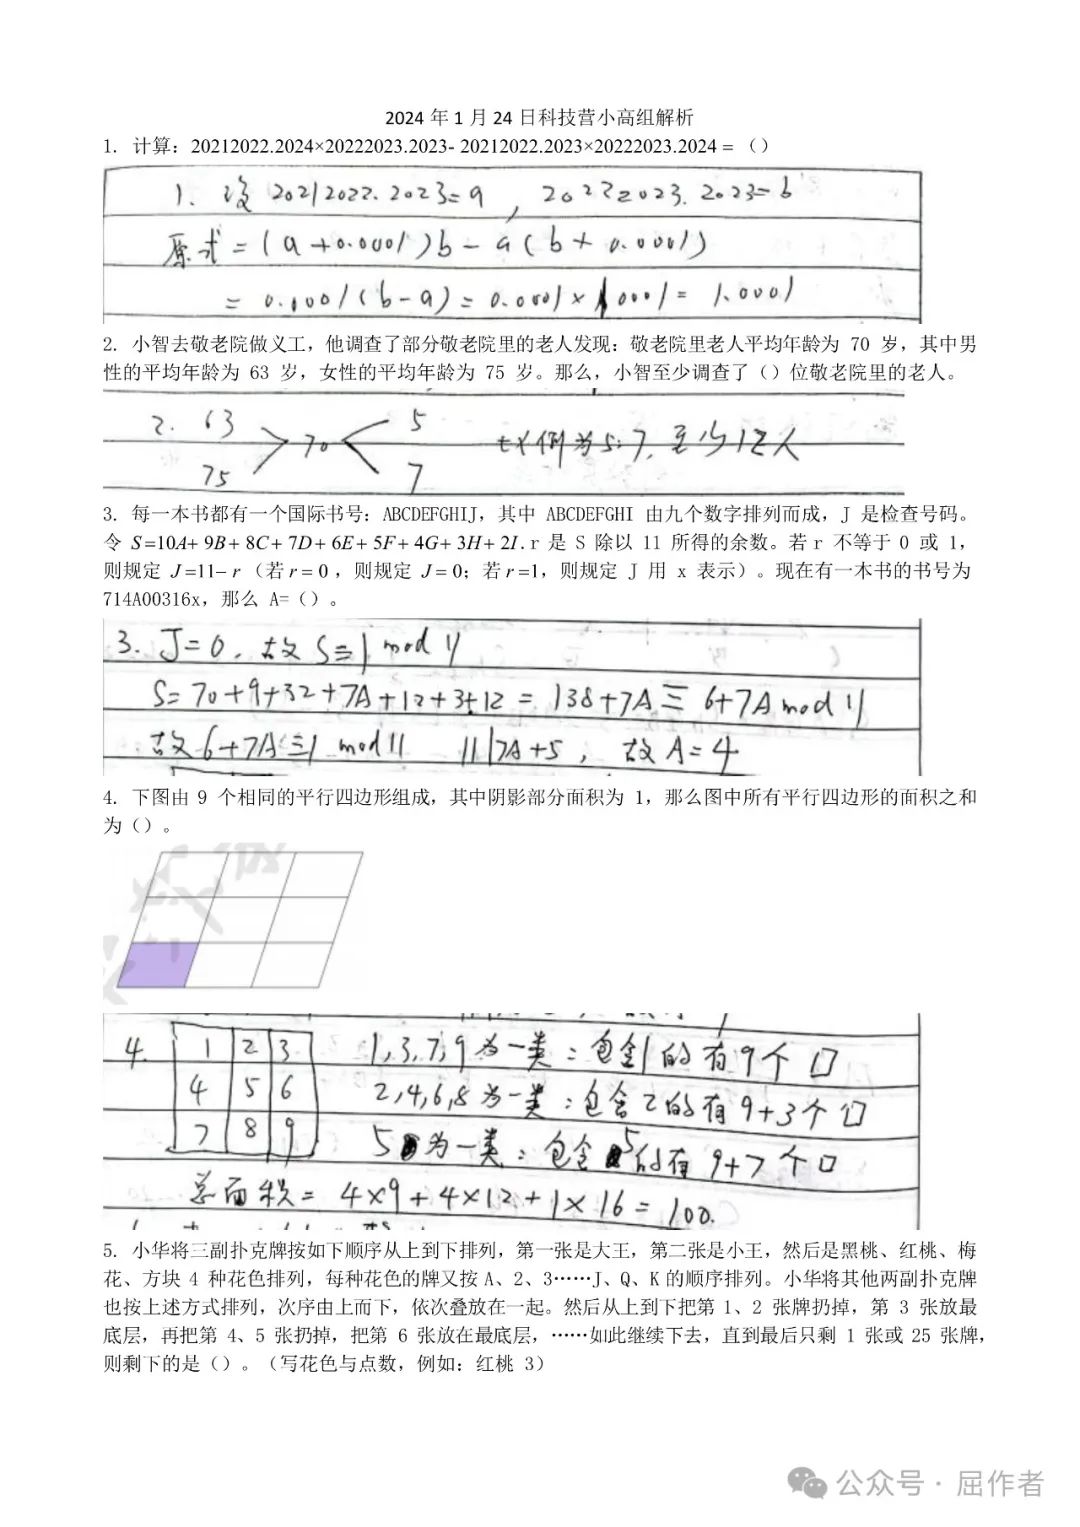 2024 年 1 月 24 日科技营小高组解析
1. 计算：20212022.2024×20222023.2023- 20212022.2023×20222023.2024 = （）
1. 设 20212022.2023=a , 20222023.2023=b
原式 = (a+0.0001)b - a(b+0.0001)
= 0.0001(b-a) = 0.0001×10001 = 1.0001
2. 小智去敬老院做义工，他调查了部分敬老院里的老人发现：敬老院里老人平均年龄为 70 岁，其中男
性的平均年龄为 63 岁，女性的平均年龄为 75 岁。那么，小智至少调查了（）位敬老院里的老人。
2. 63 5
70 比例为5:7, 至少12人
75 7
3. 每一本书都有一个国际书号：ABCDEFGHIJ，其中 ABCDEFGHI 由九个数字排列而成，J 是检查号码。
令 S=10A+ 9B+ 8C+ 7D+ 6E+ 5F+ 4G+ 3H+ 2I. r 是 S 除以 11 所得的余数。若 r 不等于 0 或 1，
则规定 J=11− r（若 r = 0，则规定 J = 0；若 r =1，则规定 J 用 x 表示）。现在有一本书的书号为
714A00316x，那么 A=（）。
3. J=0, 故 S≡1 mod 11
S= 70+9+32+7A+12+3+12 = 138+7A ≡ 6+7A mod 11
故 6+7A≡1 mod 11 11|7A+5, 故 A=4
4. 下图由 9 个相同的平行四边形组成，其中阴影部分面积为 1，那么图中所有平行四边形的面积之和
为（）。
4. 1 2 3 1,3,7,9 为一类：包含1的有9个口
4 5 6 2,4,6,8 为一类：包含2的有9+3个口
7 8 9 5 为一类：包含5的有9+7个口
总面积 = 4×9+4×12+1×16=100.
5. 小华将三副扑克牌按如下顺序从上到下排列，第一张是大王，第二张是小王，然后是黑桃、红桃、梅
花、方块 4 种花色排列，每种花色的牌又按 A、2、3……J、Q、K 的顺序排列。小华将其他两副扑克牌
也按上述方式排列，次序由上而下，依次叠放在一起。然后从上到下把第 1、2 张牌扔掉，第 3 张放最
底层，再把第 4、5 张扔掉，把第 6 张放在最底层，……如此继续下去，直到最后只剩 1 张或 25 张牌，
则剩下的是（）。（写花色与点数，例如：红桃 3）
公众号 · 屈作者